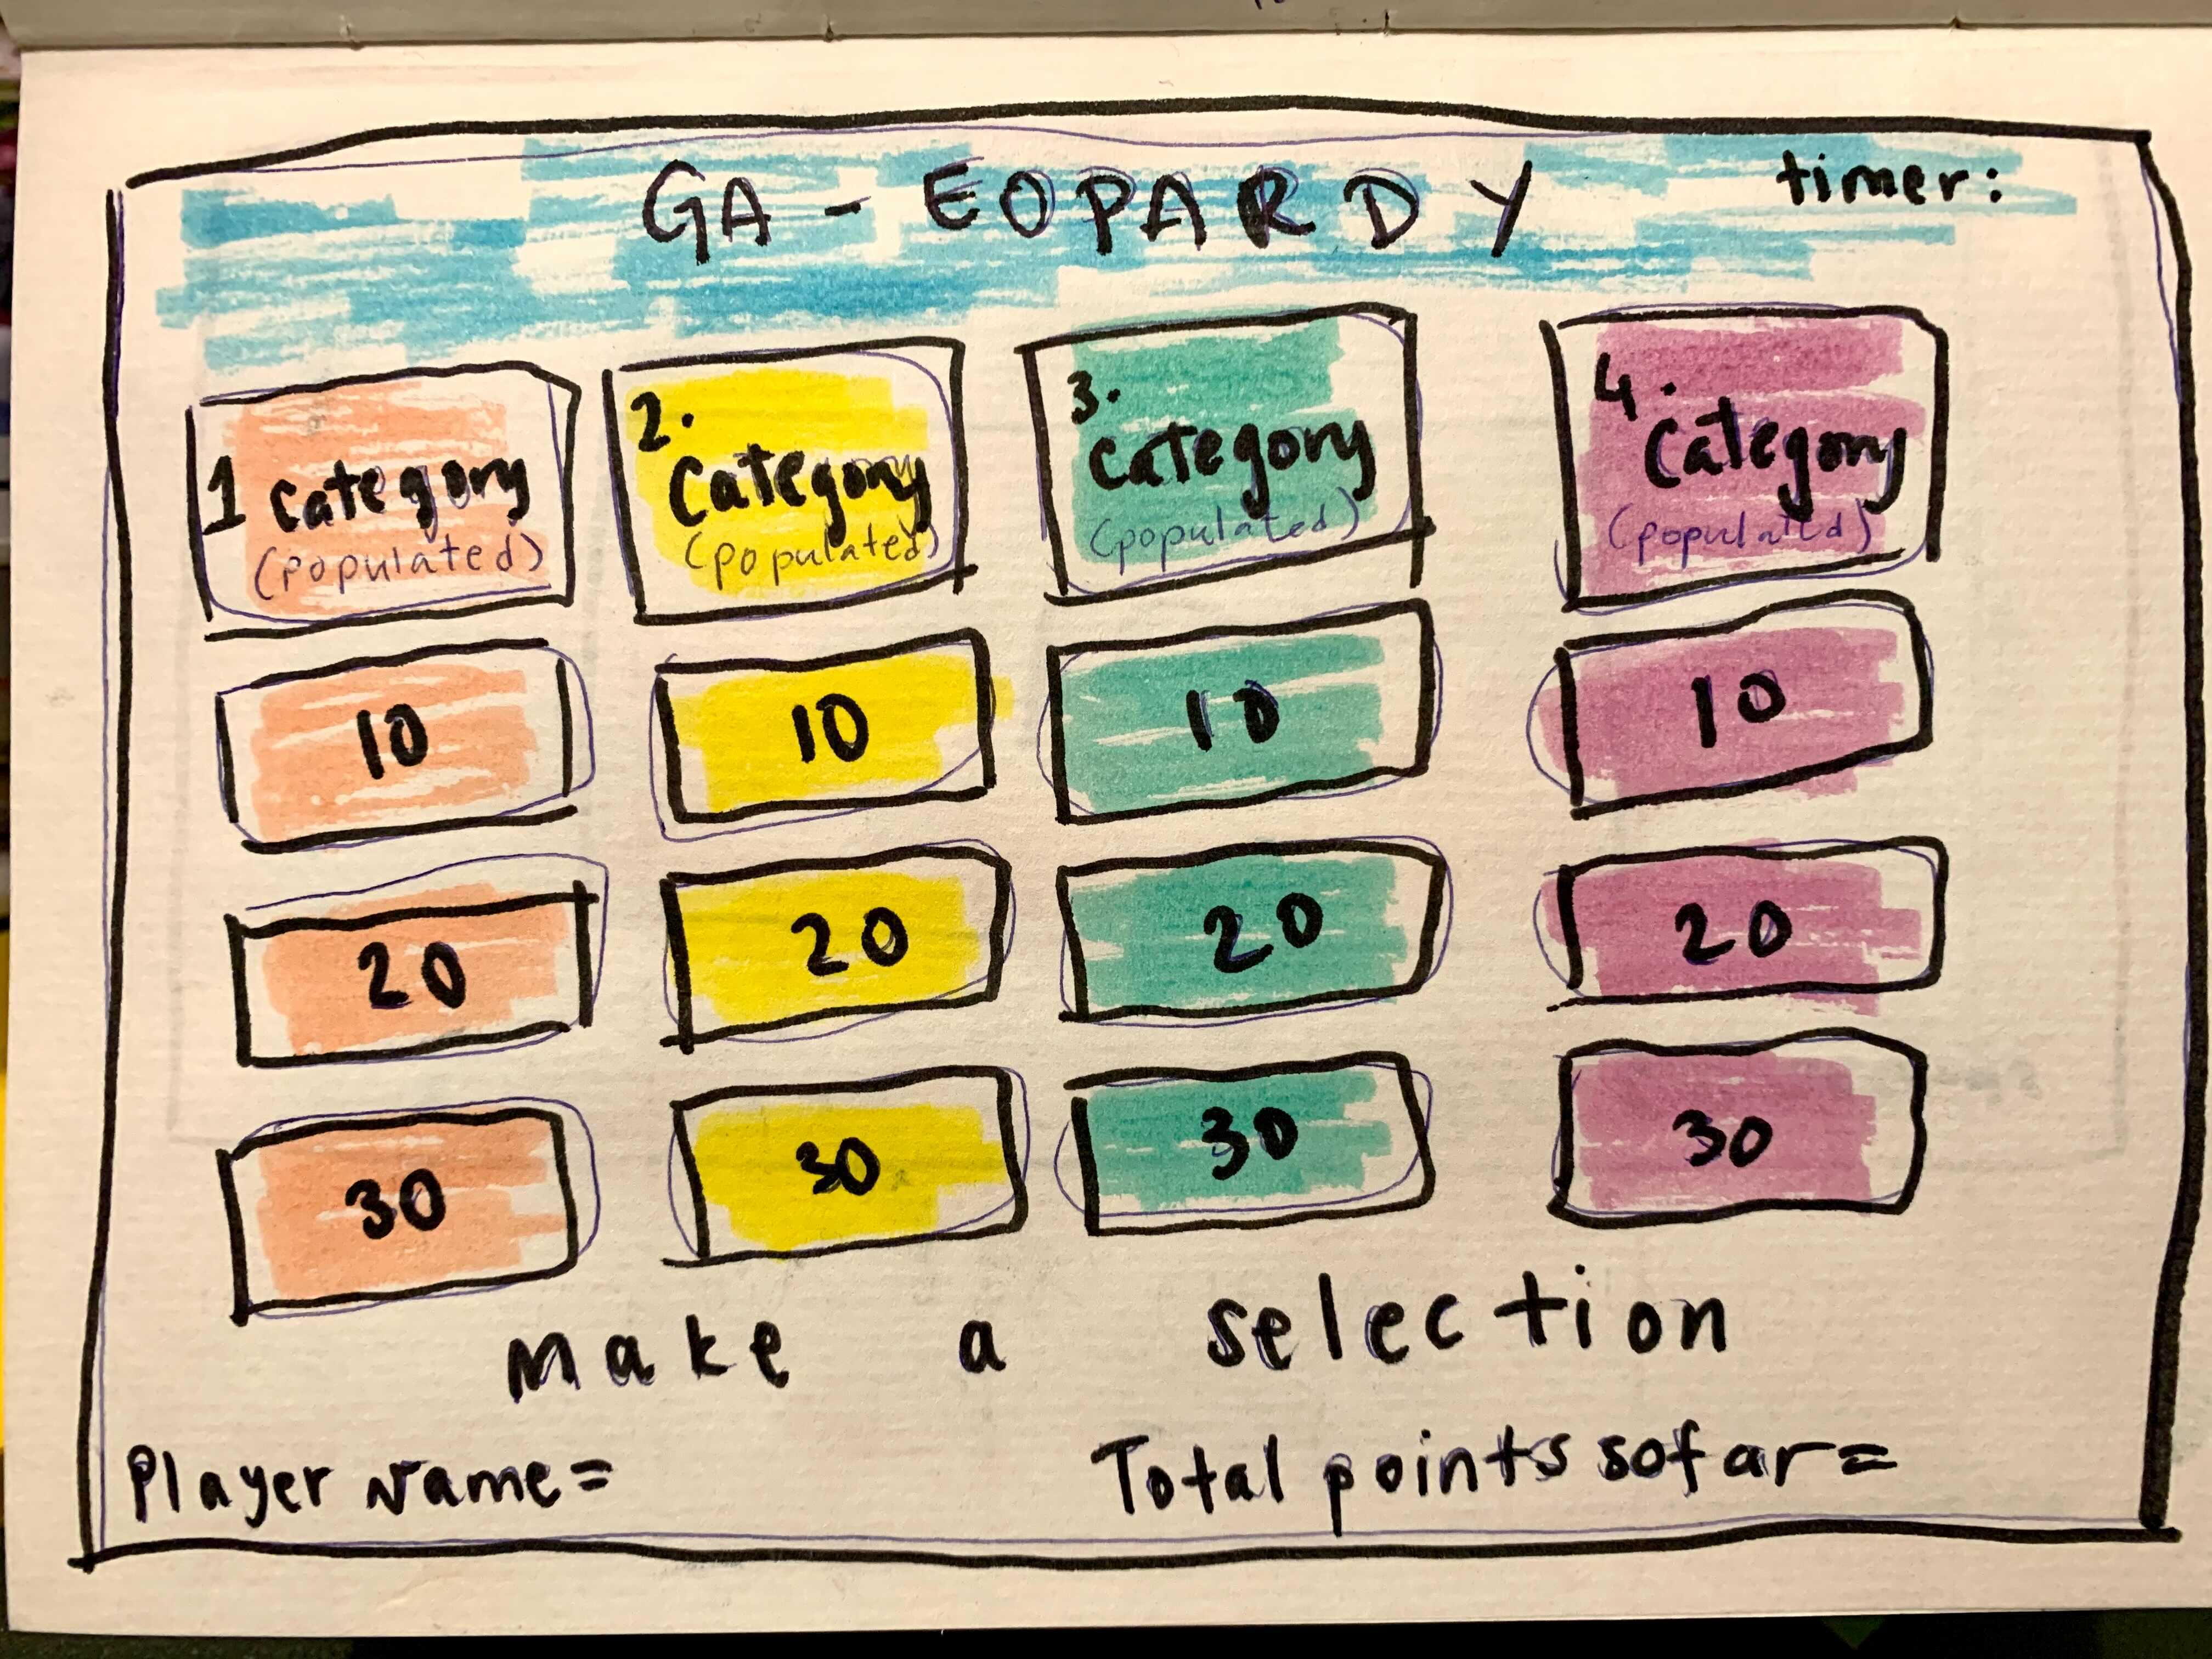 GA - EOPARDY timer:
1 Category
(populated)
2.
Category
(populated)
3.
Category
(populated)
4.
Category
(populated)
10 10 10 10
20 20 20 20
30 30 30 30
make a selection
Player Name= Total points sofar=